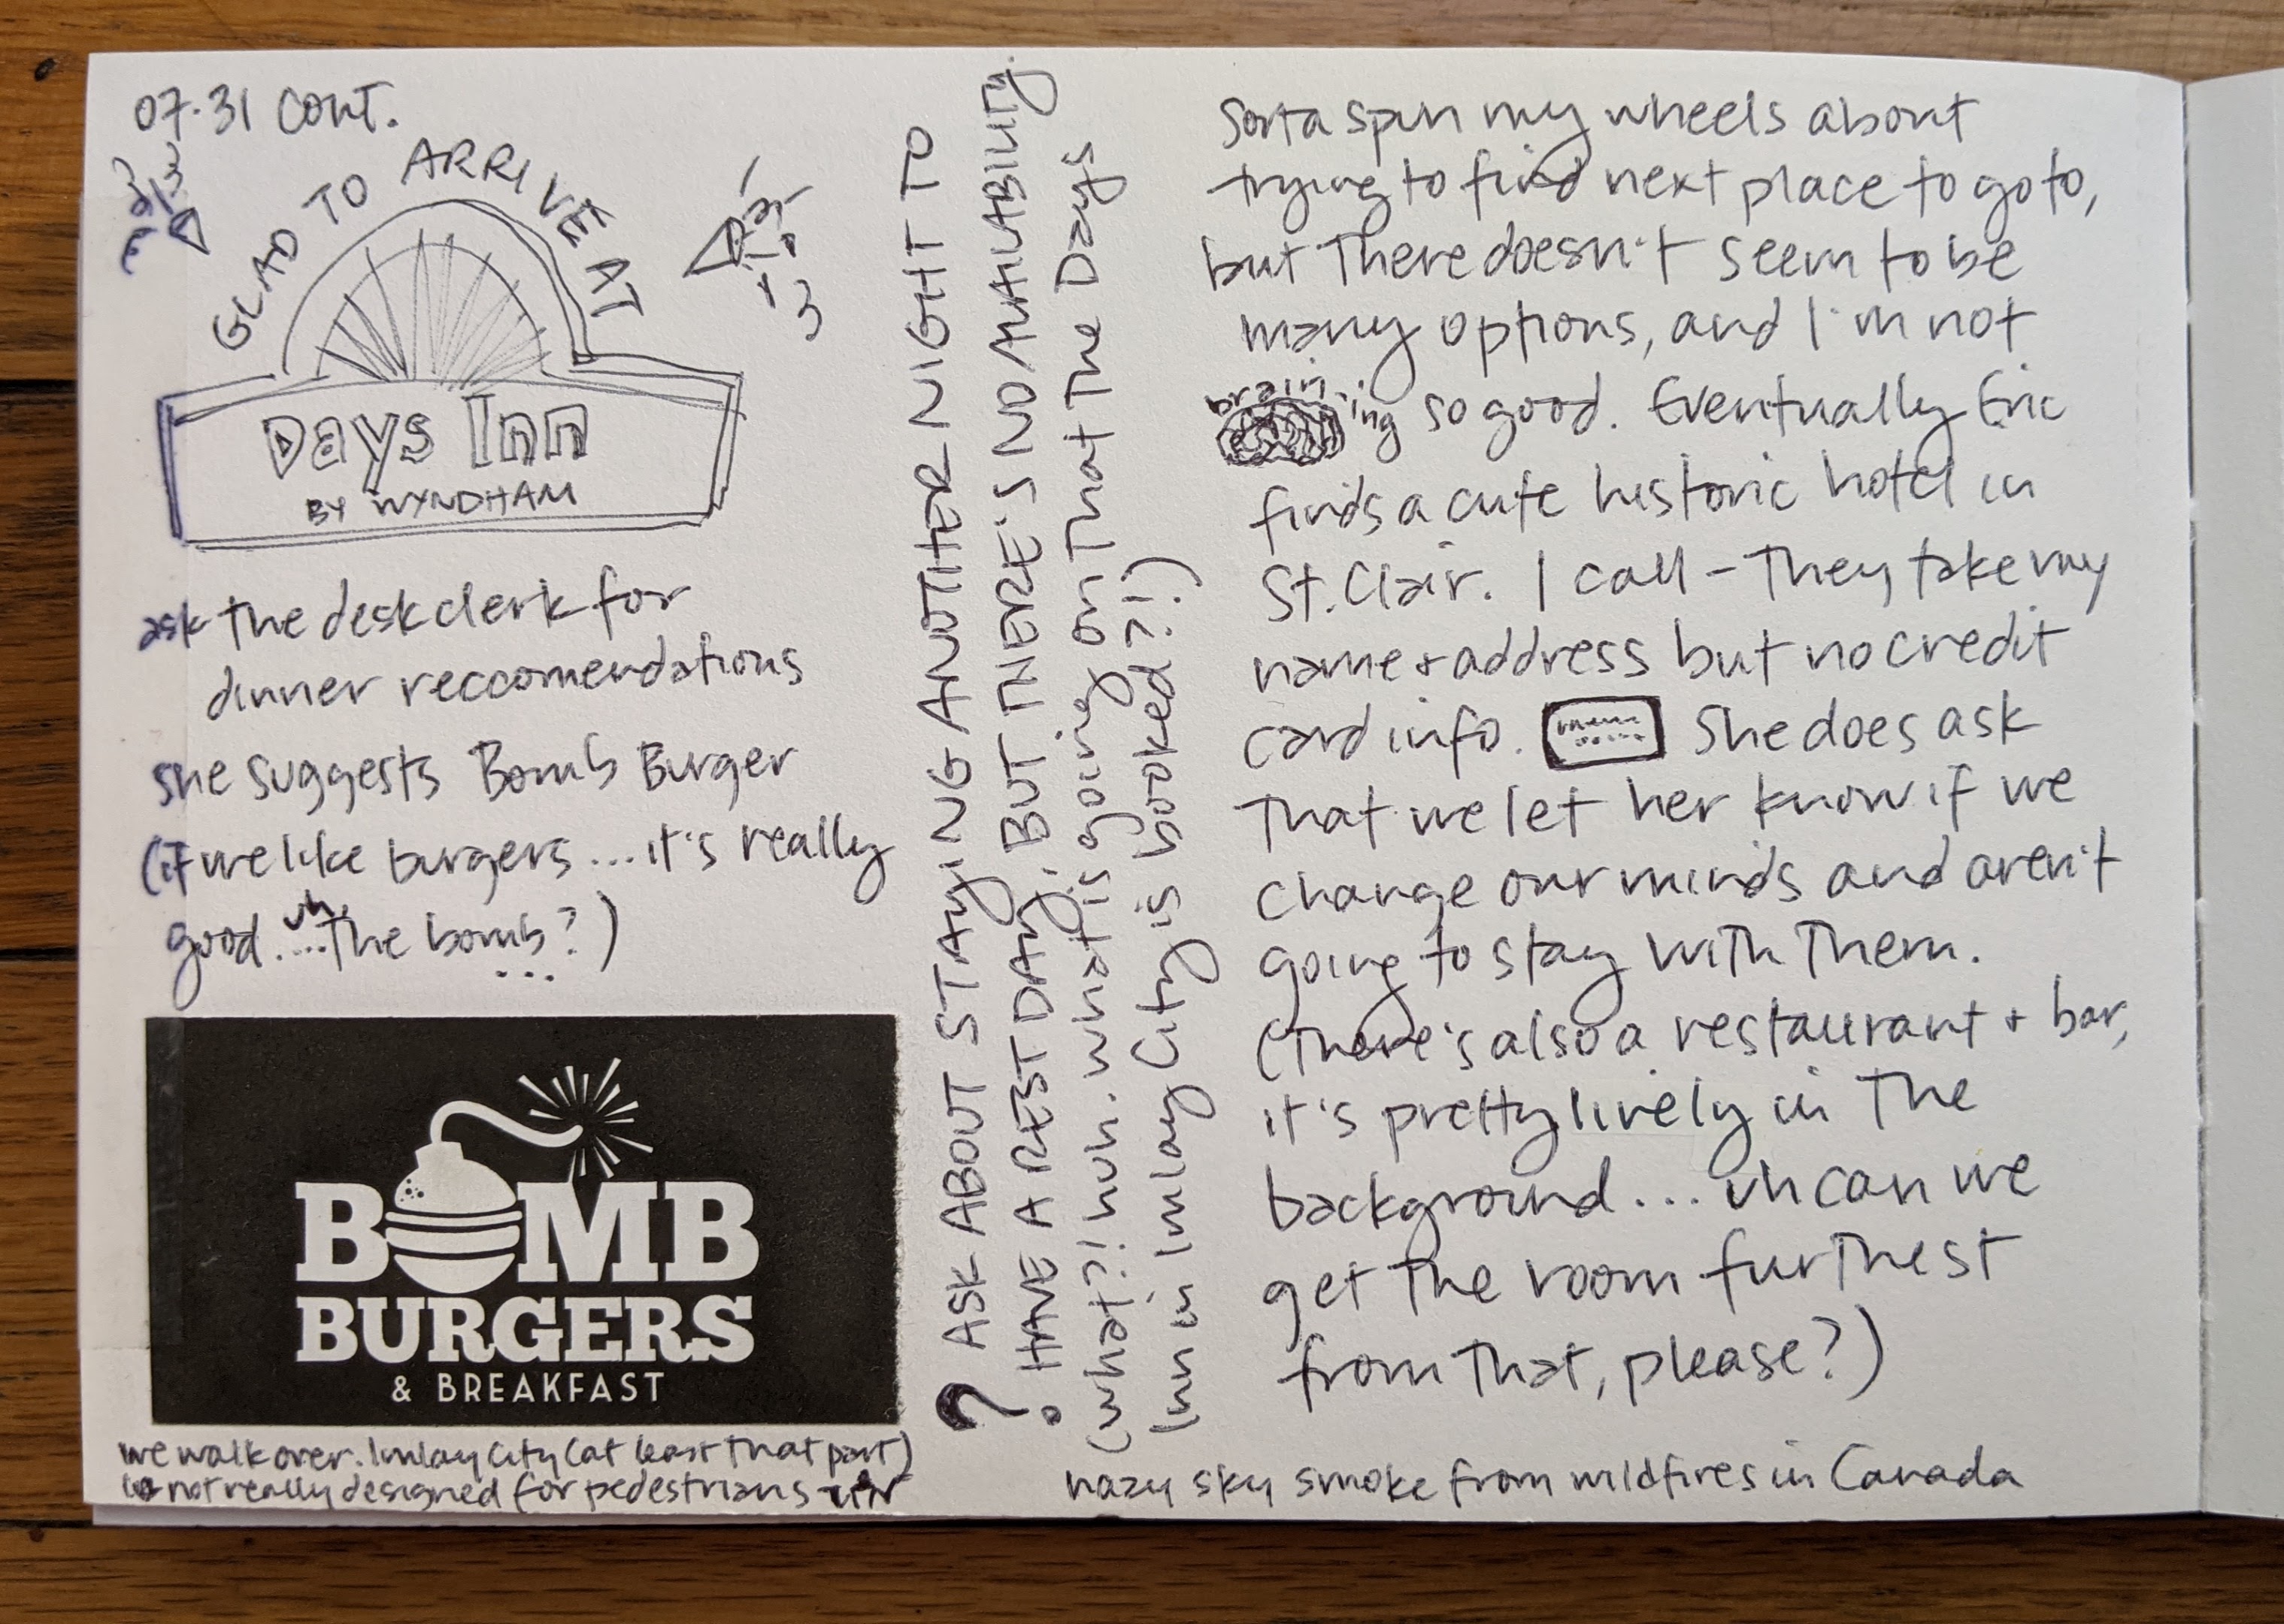 07.31 cont.
GLAD TO ARRIVE AT
Days Inn
BY WYNDHAM
ask the desk clerk for
dinner reccomendations
she suggests Bomb Burger
(if we like burgers ... it's really
good. ... uh, the bomb? )
...
BOMB
BURGERS
& BREAKFAST
we walk over. Imlay City (at least that part)
is not really designed for pedestrians
? ASK ABOUT STAYING ANOTHER NIGHT TO
HAVE A REST DAY, BUT THERE'S NO AVAILABILITY.
(what?! huh. what is going on that the Days
Inn in Imlay City is booked?!?)
Sorta spin my wheels about
trying to find next place to go to,
but there doesn't seem to be
many options, and I'm not
brain-ing so good. Eventually Eric
finds a cute historic hotel in
St. Clair. I call - they take my
name + address but no credit
card info. She does ask
that we let her know if we
change our minds and aren't
going to stay with them.
(there's also a restaurant + bar,
it's pretty lively in the
background ... uh can we
get the room furthest
from that, please?)
hazy sky smoke from wildfires in Canada